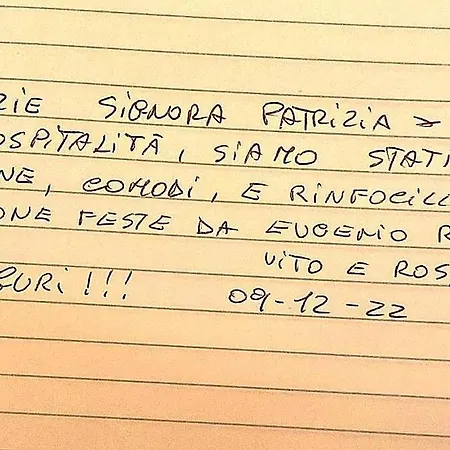 ZIE SIGNORA PATRIZIA >
OSPITALITÀ, SIAMO STATI
NE, COMODI, E RINFOCILL
ONE FESTE DA EUGENIO R
VITO E ROS
GURI !!! 09-12-22